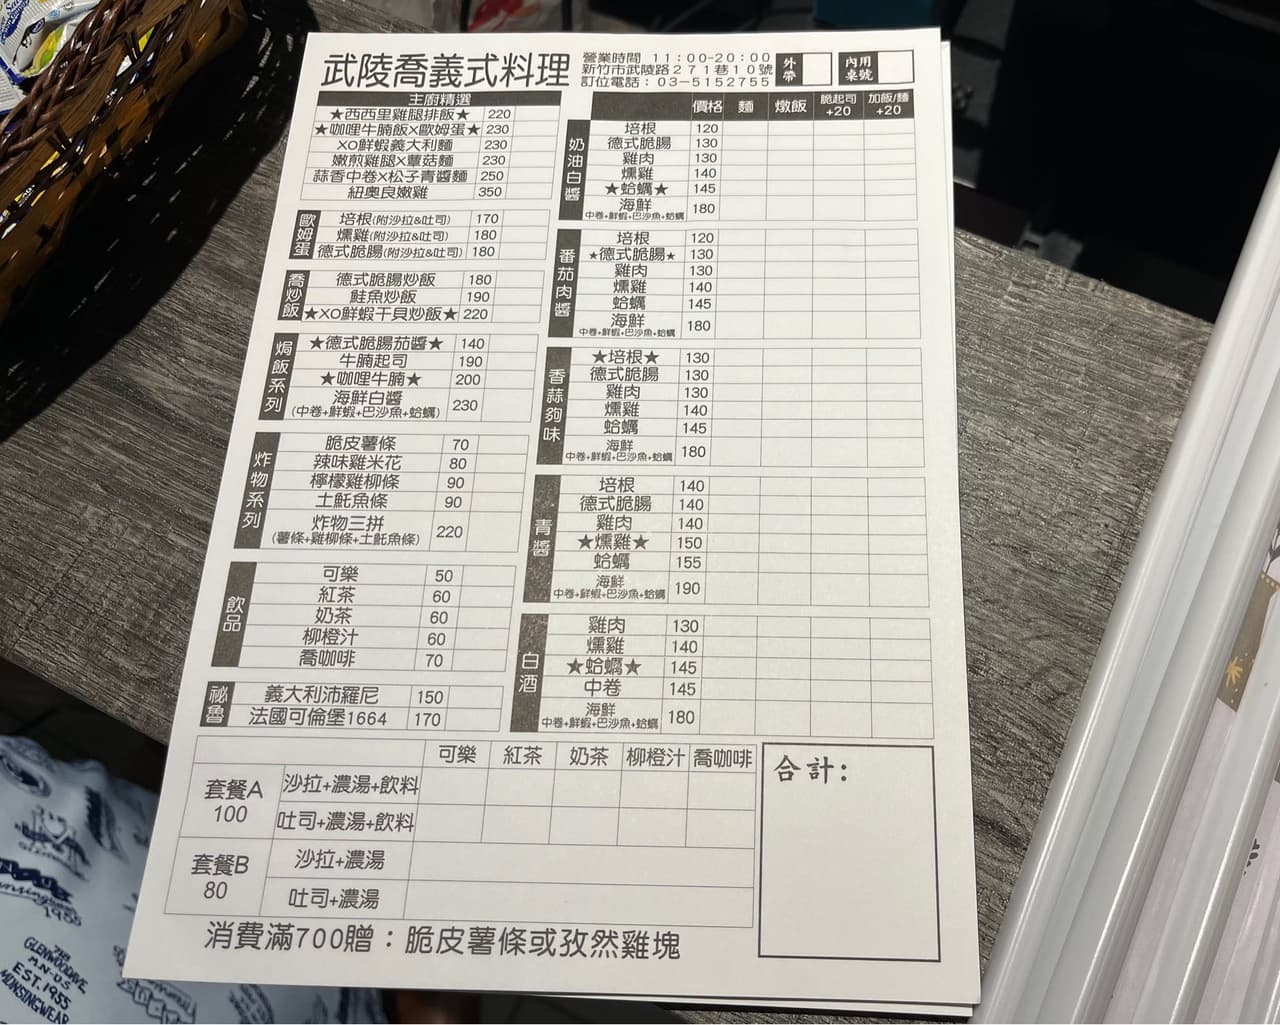 武陵喬義式料理
營業時間 11:00-20:00
新竹市武陵路271巷10號
訂位電話：03-5152755
外帶
內用桌號
主廚精選
★西西里雞腿排飯★ 220
★咖哩牛腩飯×歐姆蛋★ 230
XO鮮蝦義大利麵 230
嫩煎雞腿×蕈菇麵 230
蒜香中卷×松子青醬麵 250
紐奧良嫩雞 350
歐姆蛋
培根(附沙拉&吐司) 170
燻雞(附沙拉&吐司) 180
德式脆腸(附沙拉&吐司) 180
喬炒飯
德式脆腸炒飯 180
鮭魚炒飯 190
★XO鮮蝦干貝炒飯★ 220
焗飯系列
★德式脆腸茄醬★ 140
牛腩起司 190
★咖哩牛腩★ 200
海鮮白醬 230
(中卷+鮮蝦+巴沙魚+蛤蠣)
炸物系列
脆皮薯條 70
辣味雞米花 80
檸檬雞柳條 90
土魠魚條 90
炸物三拼 220
(薯條+雞柳條+土魠魚條)
飲品
可樂 50
紅茶 60
奶茶 60
柳橙汁 60
喬咖啡 70
祕魯
義大利沛羅尼 150
法國可倫堡1664 170
價格 麵 燉飯 脆起司+20 加飯/麵+20
奶油白醬
培根 120
德式脆腸 130
雞肉 130
燻雞 140
★蛤蠣★ 145
海鮮 180
中卷+鮮蝦+巴沙魚+蛤蠣
番茄肉醬
培根 120
★德式脆腸★ 130
雞肉 130
燻雞 140
蛤蠣 145
海鮮 180
中卷+鮮蝦+巴沙魚+蛤蠣
香蒜夠味
★培根★ 130
德式脆腸 130
雞肉 130
燻雞 140
蛤蠣 145
海鮮 180
中卷+鮮蝦+巴沙魚+蛤蠣
青醬
培根 140
德式脆腸 140
雞肉 140
★燻雞★ 150
蛤蠣 155
海鮮 190
中卷+鮮蝦+巴沙魚+蛤蠣
白酒
雞肉 130
燻雞 140
★蛤蠣★ 145
中卷 145
海鮮 180
中卷+鮮蝦+巴沙魚+蛤蠣
可樂 紅茶 奶茶 柳橙汁 喬咖啡
套餐A 100
沙拉+濃湯+飲料
吐司+濃湯+飲料
套餐B 80
沙拉+濃湯
吐司+濃湯
合計：
消費滿700贈：脆皮薯條或孜然雞塊
1955
THE
GLENWOODAVE
M.N-US
EST.1955
MUNSINGWEAR